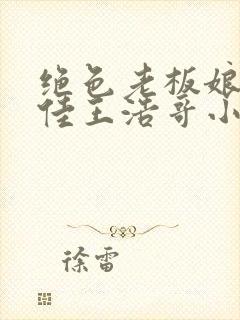 绝色老板娘
佳王浩哥小
徐雷